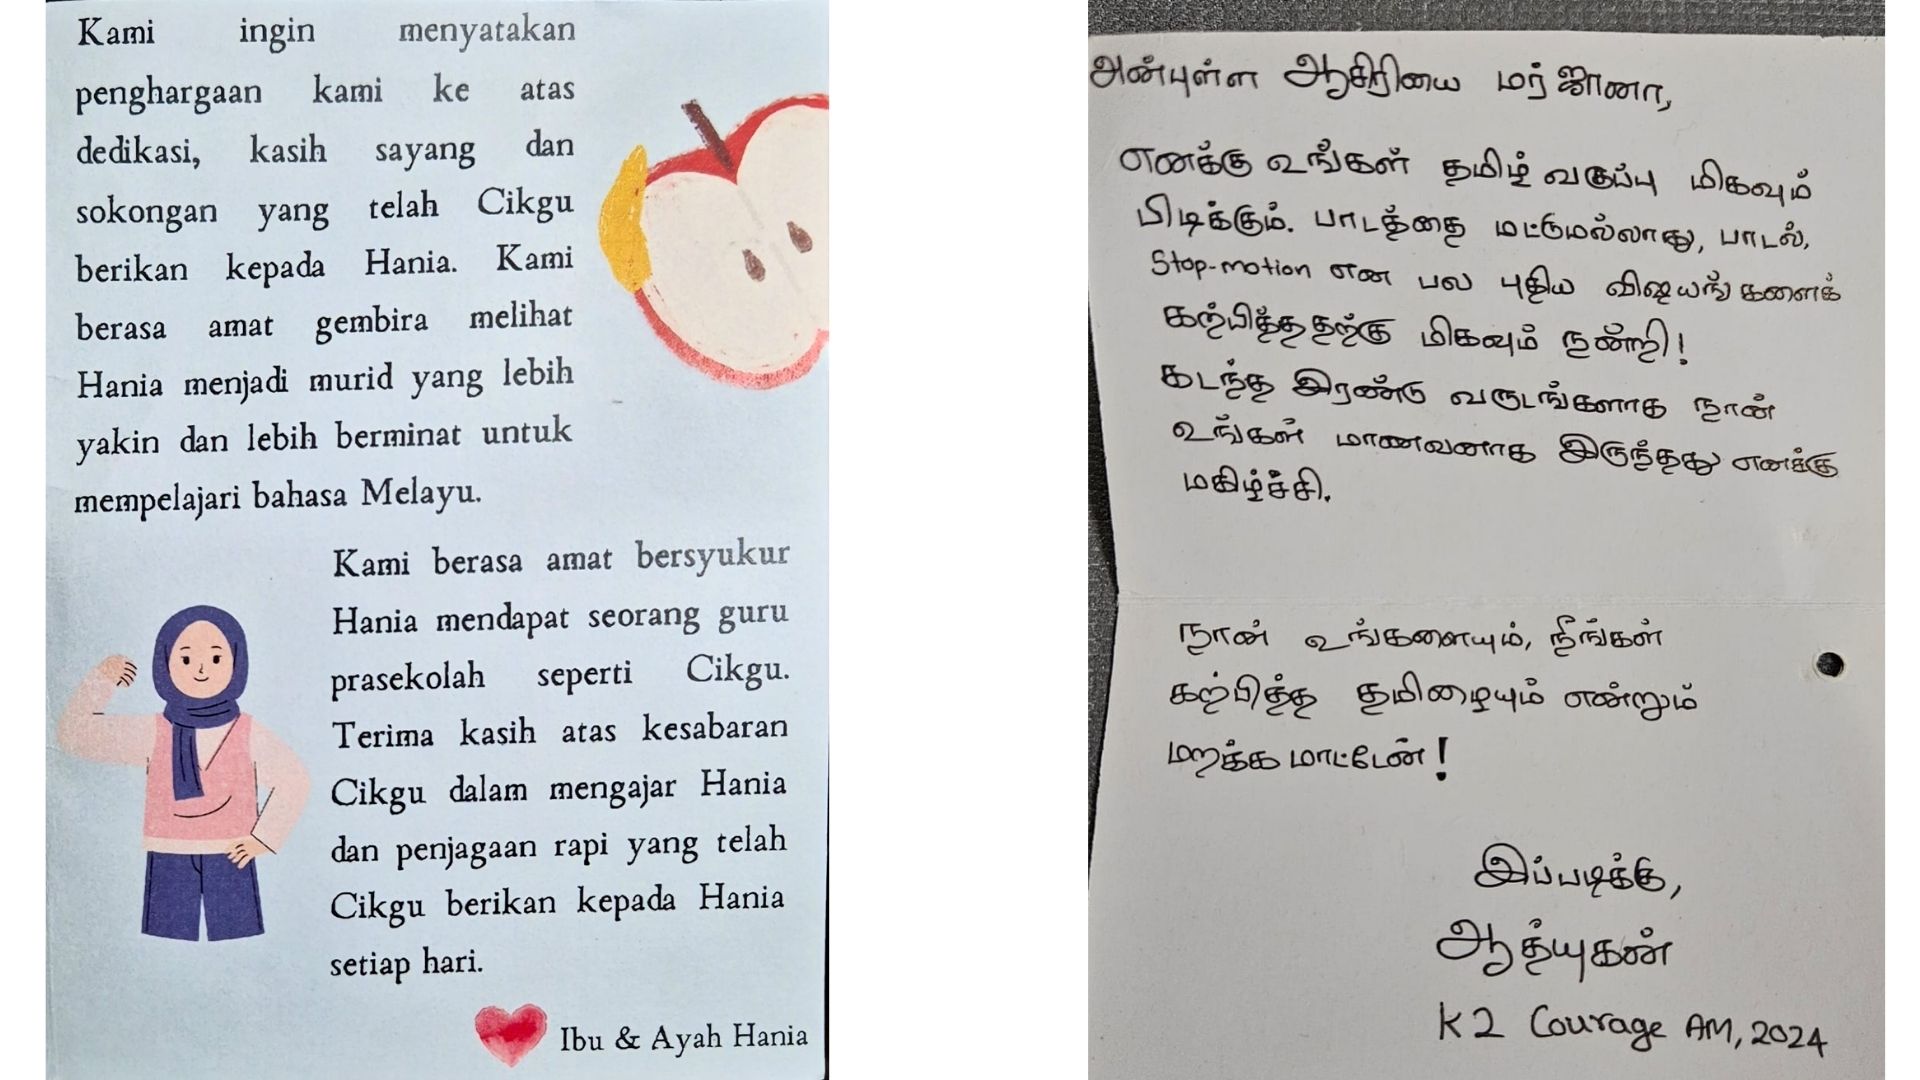 Kami ingin menyatakan
penghargaan kami ke atas
dedikasi, kasih sayang dan
sokongan yang telah Cikgu
berikan kepada Hania. Kami
berasa amat gembira melihat
Hania menjadi murid yang lebih
yakin dan lebih berminat untuk
mempelajari bahasa Melayu.
Kami berasa amat bersyukur
Hania mendapat seorang guru
prasekolah seperti Cikgu.
Terima kasih atas kesabaran
Cikgu dalam mengajar Hania
dan penjagaan rapi yang telah
Cikgu berikan kepada Hania
setiap hari.
Ibu & Ayah Hania
அன்புள்ள ஆசிரியை மர்ஜானா,
எனக்கு உங்கள் தமிழ் வகுப்பு மிகவும்
பிடிக்கும். பாடத்தை மட்டுமல்லாது, பாடல்,
Stop-motion என பல புதிய விஷயங்களைக்
கற்பித்ததற்கு மிகவும் நன்றி!
கடந்த இரண்டு வருடங்களாக நான்
உங்கள் மாணவனாக இருந்தது எனக்கு
மகிழ்ச்சி.
நான் உங்களையும், நீங்கள்
கற்பித்த தமிழையும் என்றும்
மறக்க மாட்டேன்!
இப்படிக்கு,
ஆத்யுகன்
K2 Courage AM, 2024